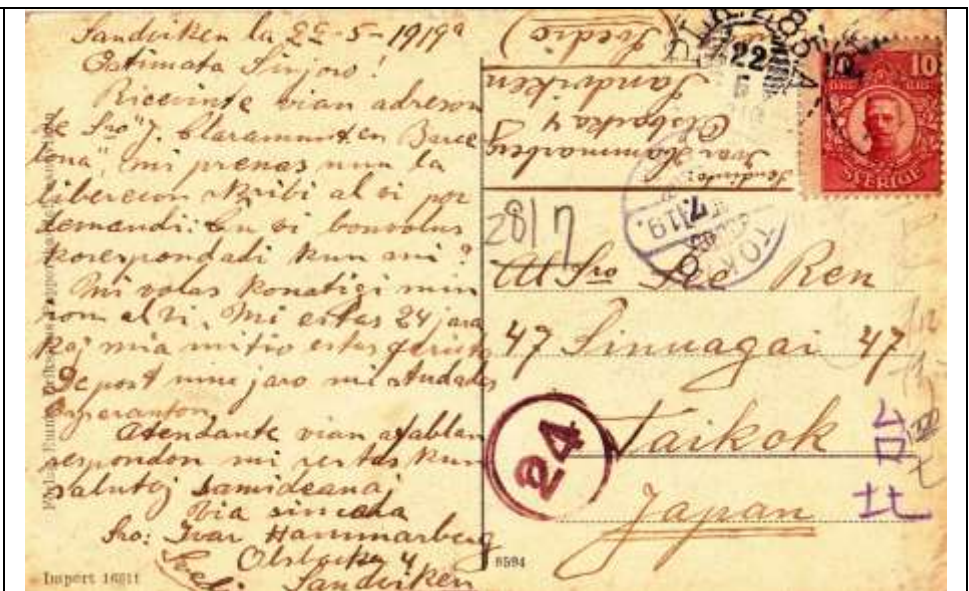 Sandviken la 22-5-1919a
Estimata Sinjoro!
Ricevinte vian adreson
de Sro "J. Claramunt en Barce
lona", mi prenas nun la
liberecon skribi al vi por
demandi: Ĉu vi bonvolus
korespondadi kun mi?
Mi volas konatigi min
al vi. Mi estas 24 jara
kaj mia estas
De post unu jaro mi studadas
Esperanton.
Atendante vian afablan
respondon mi restas kun
salutoj samideanaj
Via sincera
Sro: Ivar Hammarberg
Olsbacka 4
Sandviken
Import 16611
9594
(Svedio)
Sandviken
Olsbacka 4
Ivar Hammarberg
Sendinto:
22
5
10 10
SVERIGE
TOKIO
7.19.
28/7
Al Sro See Ren
47 Sinuagai 47
Taikok
Japan
24
台
北